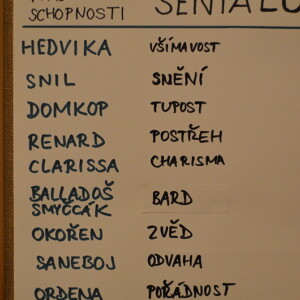 SCHOPNOSTI
HEDVIKA VŠÍMAVOST
SNIL SNĚNÍ
DOMKOP TUPOST
RENARD POSTŘEH
CLARISSA CHARISMA
BALLADOŠ
SMYČCÁK BARD
OKOŘEN ZVĚD
SANEBOJ ODVAHA
ORDENA POŘÁDNOST